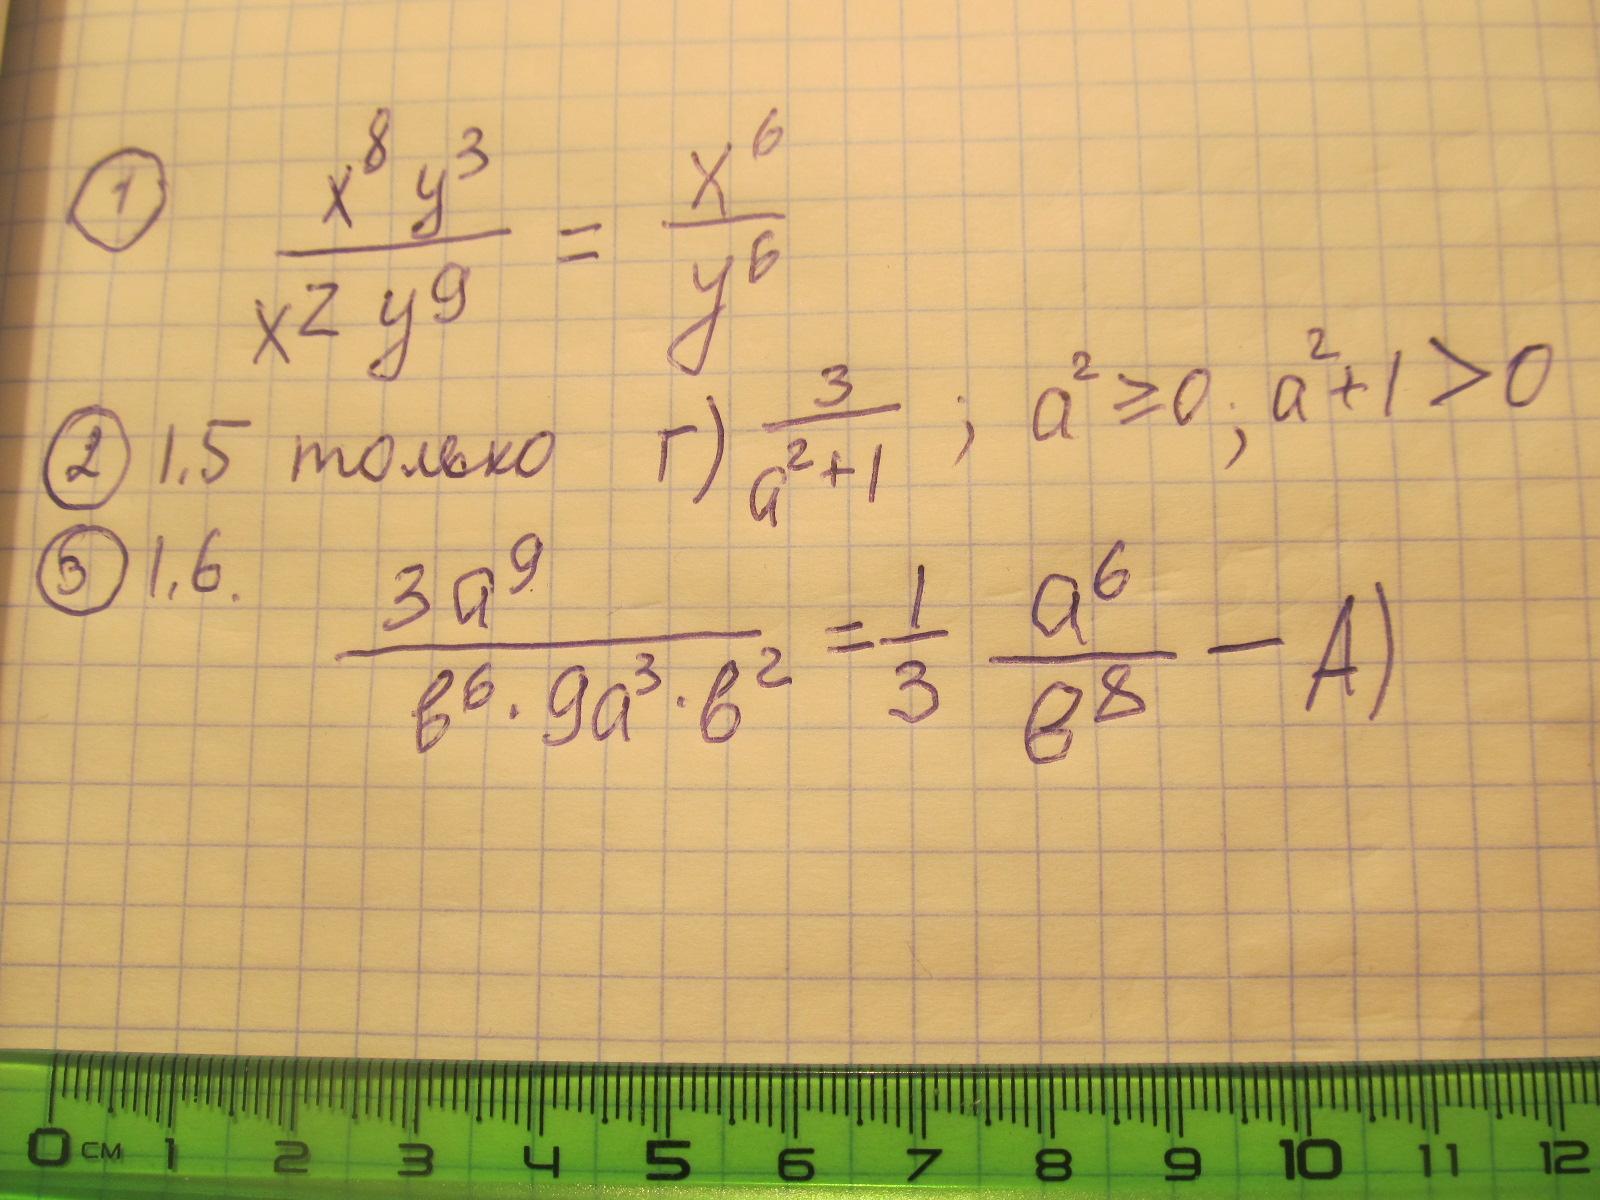 ① x⁸y³ / x²y⁹ = x⁶ / y⁶
② 1.5 только г) 3 / a²+1 ; a² ≥ 0; a²+1 > 0
③ 1.6. 3a⁹ / в⁶ · 9a³ · в² = 1/3 a⁶ / в⁸ — А)
0 см 1 2 3 4 5 6 7 8 9 10 11 12